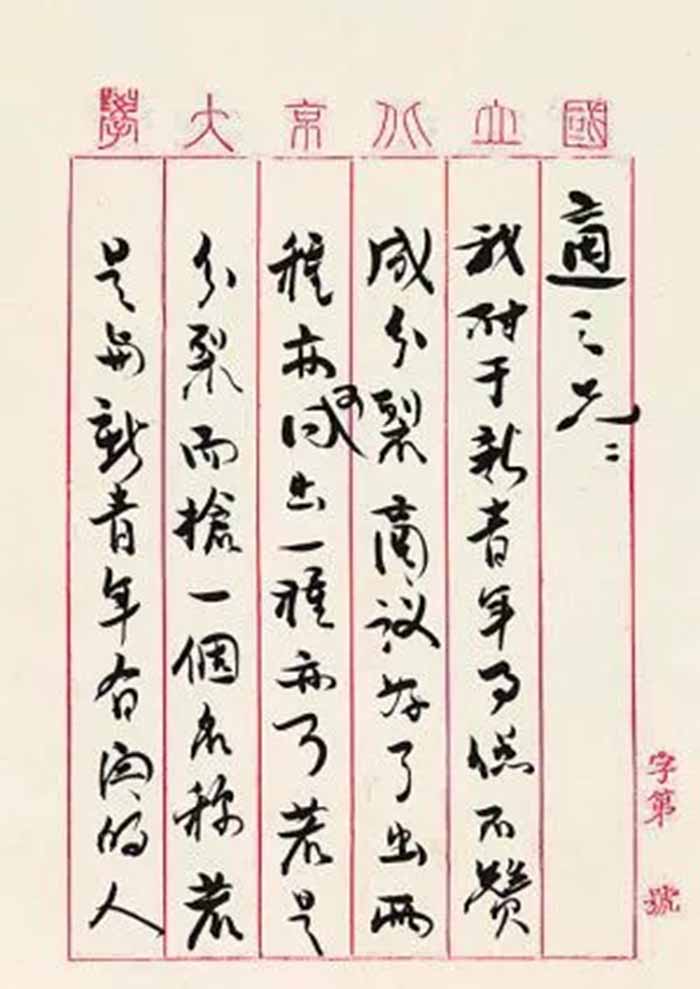 國立北京大學
適之兄：
我對于新青年事總不贊
成分裂商議好了出兩
種亦可同出一種亦可若是
分裂而搶一個名称若
是與新青年有関的人
字第 號